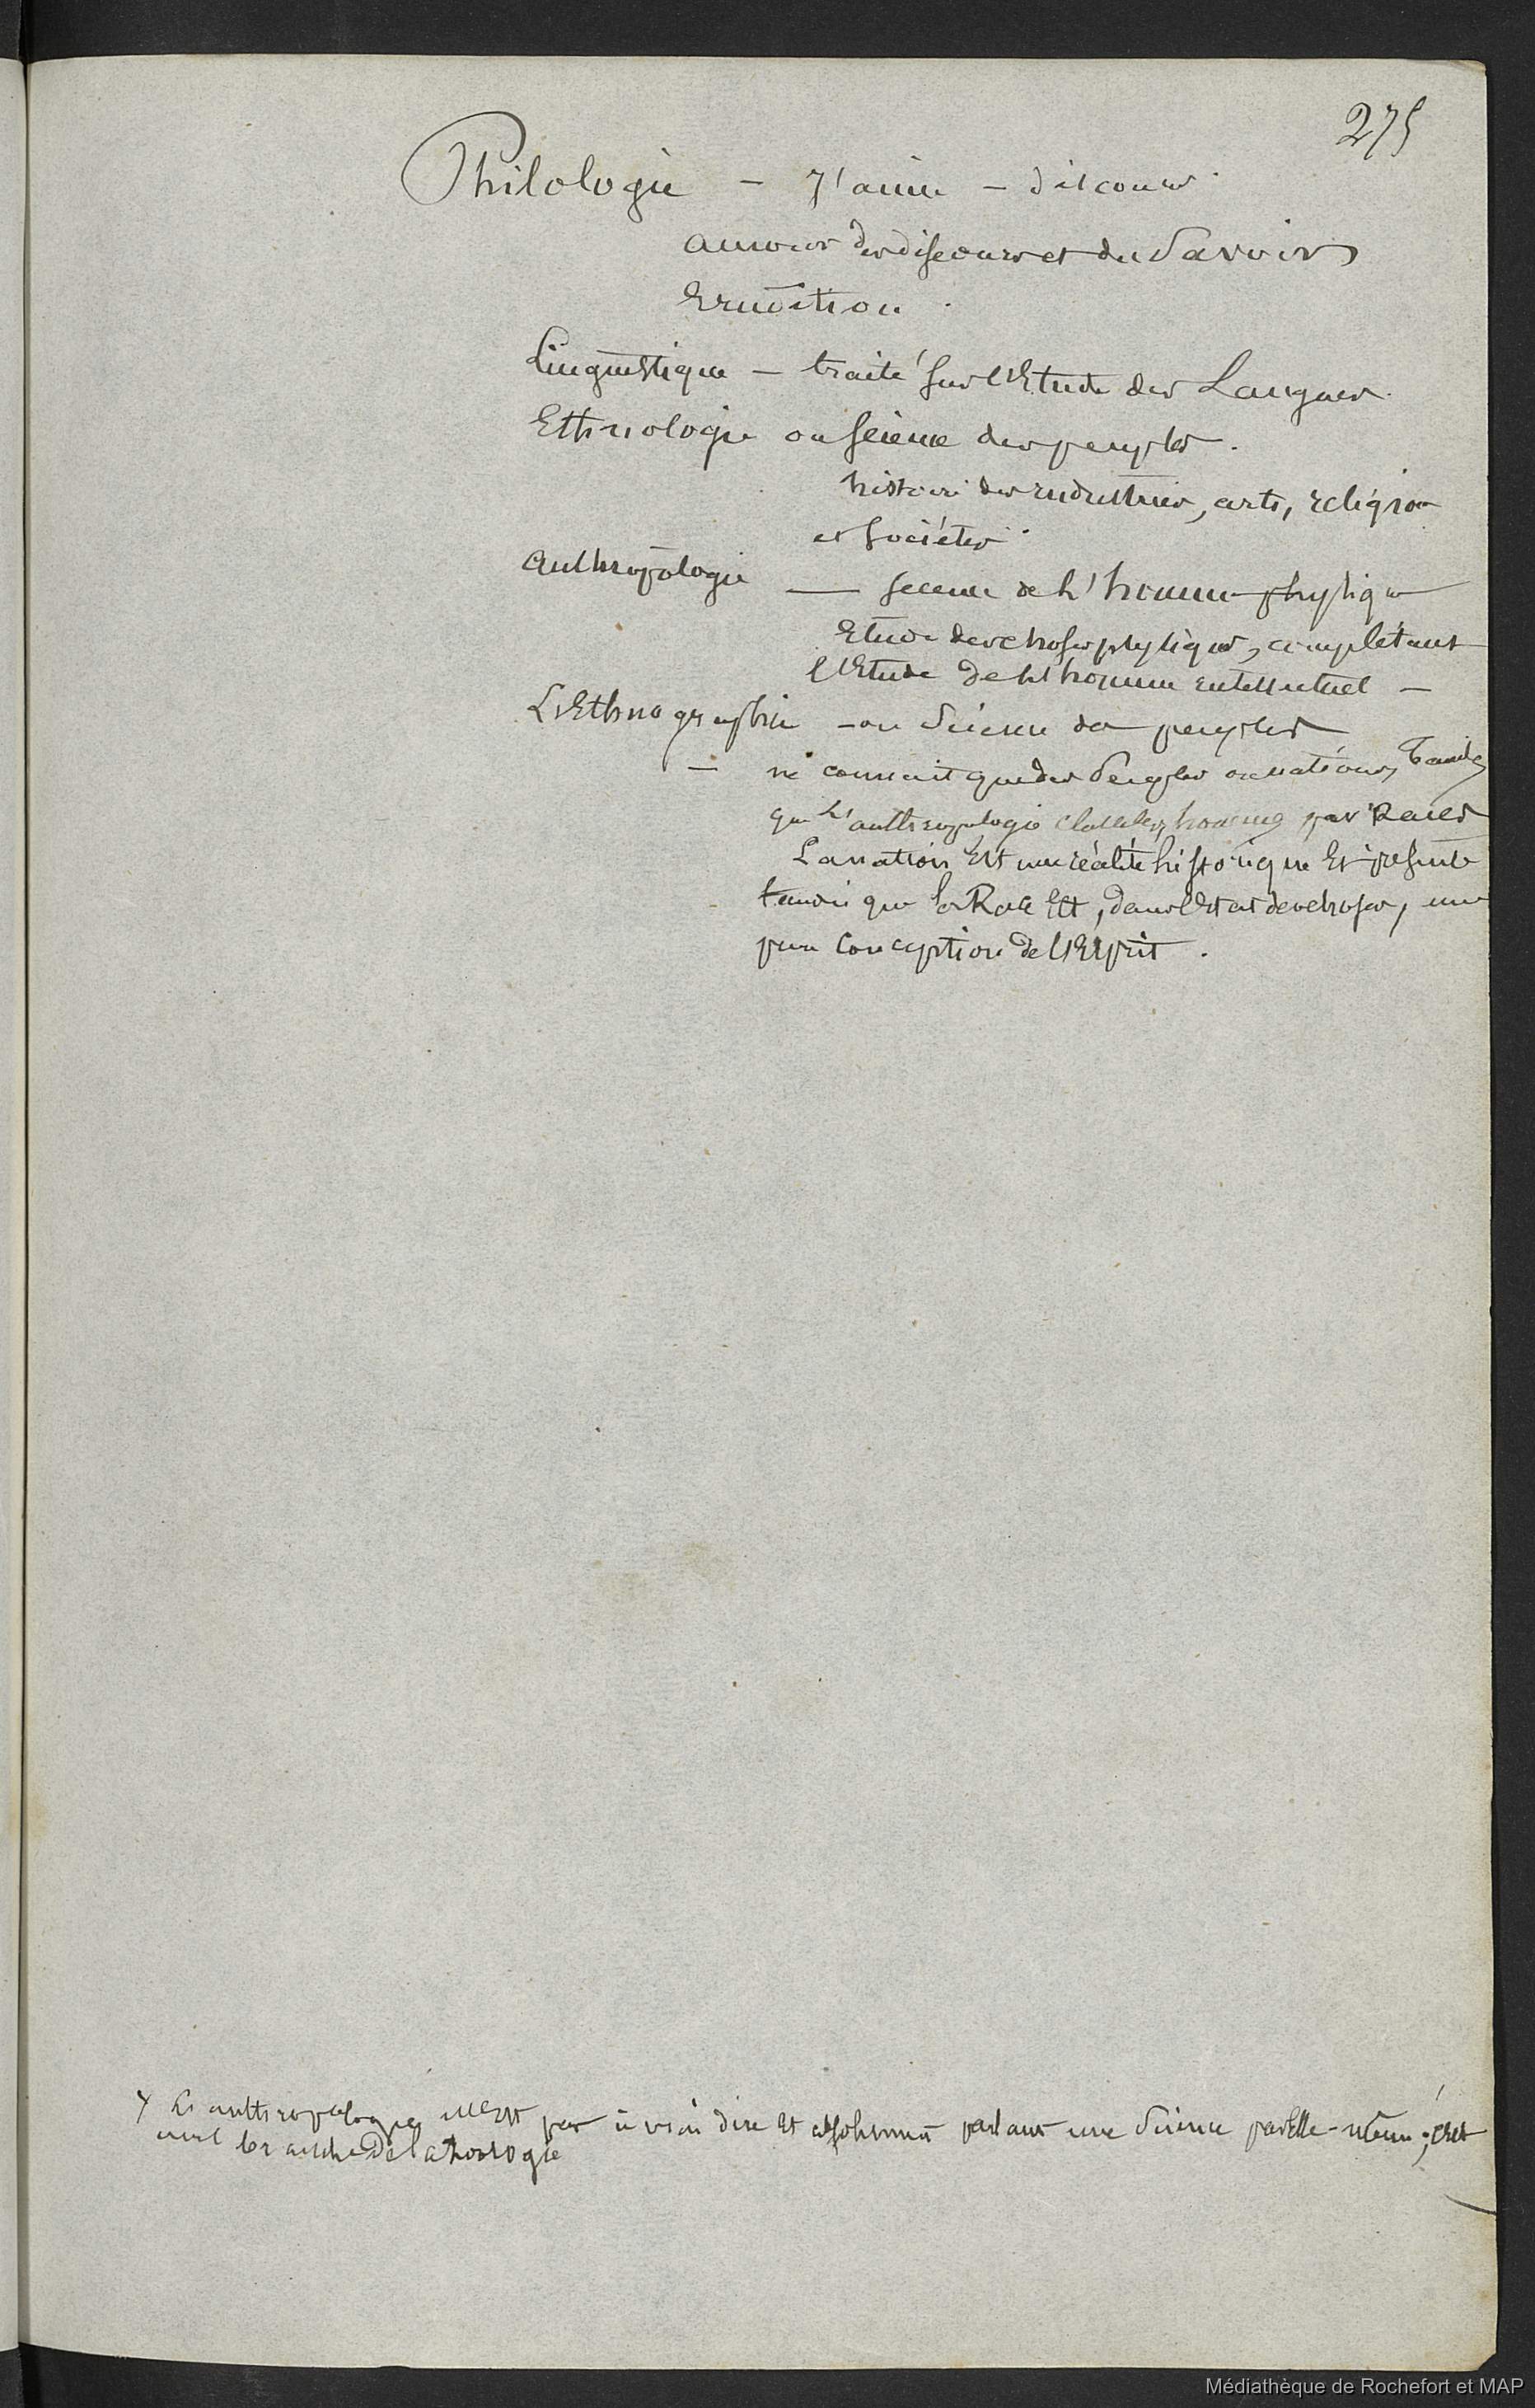 275
Philologie - J'aime - discours
amour des discours et du Savoir
Erudition.
Linguistique - traité sur l'Etude des Langues.
Ethnologie ou science des peuples.
histoire des industries, arts, religion
et sociétés
Anthropologie — science de l'homme physique
Etude des choses physiques, complétant
l'Etude de l'homme intellectuel -
L'Ethnographie - ou Science des peuples
- ne connait que des Peuples ou nations, Tandis
que l'anthropologie classe les hommes par Races
La nation Est une réalité historique Et présente
tandis que la Race Est, dans l'Etat des choses, une
pure Conception de l'Esprit.
L'anthropologie n'est pas à vrai dire Et absolument parlant une Science par Elle-même; c'est
une branche de la Zoologie
Médiathèque de Rochefort et MAP